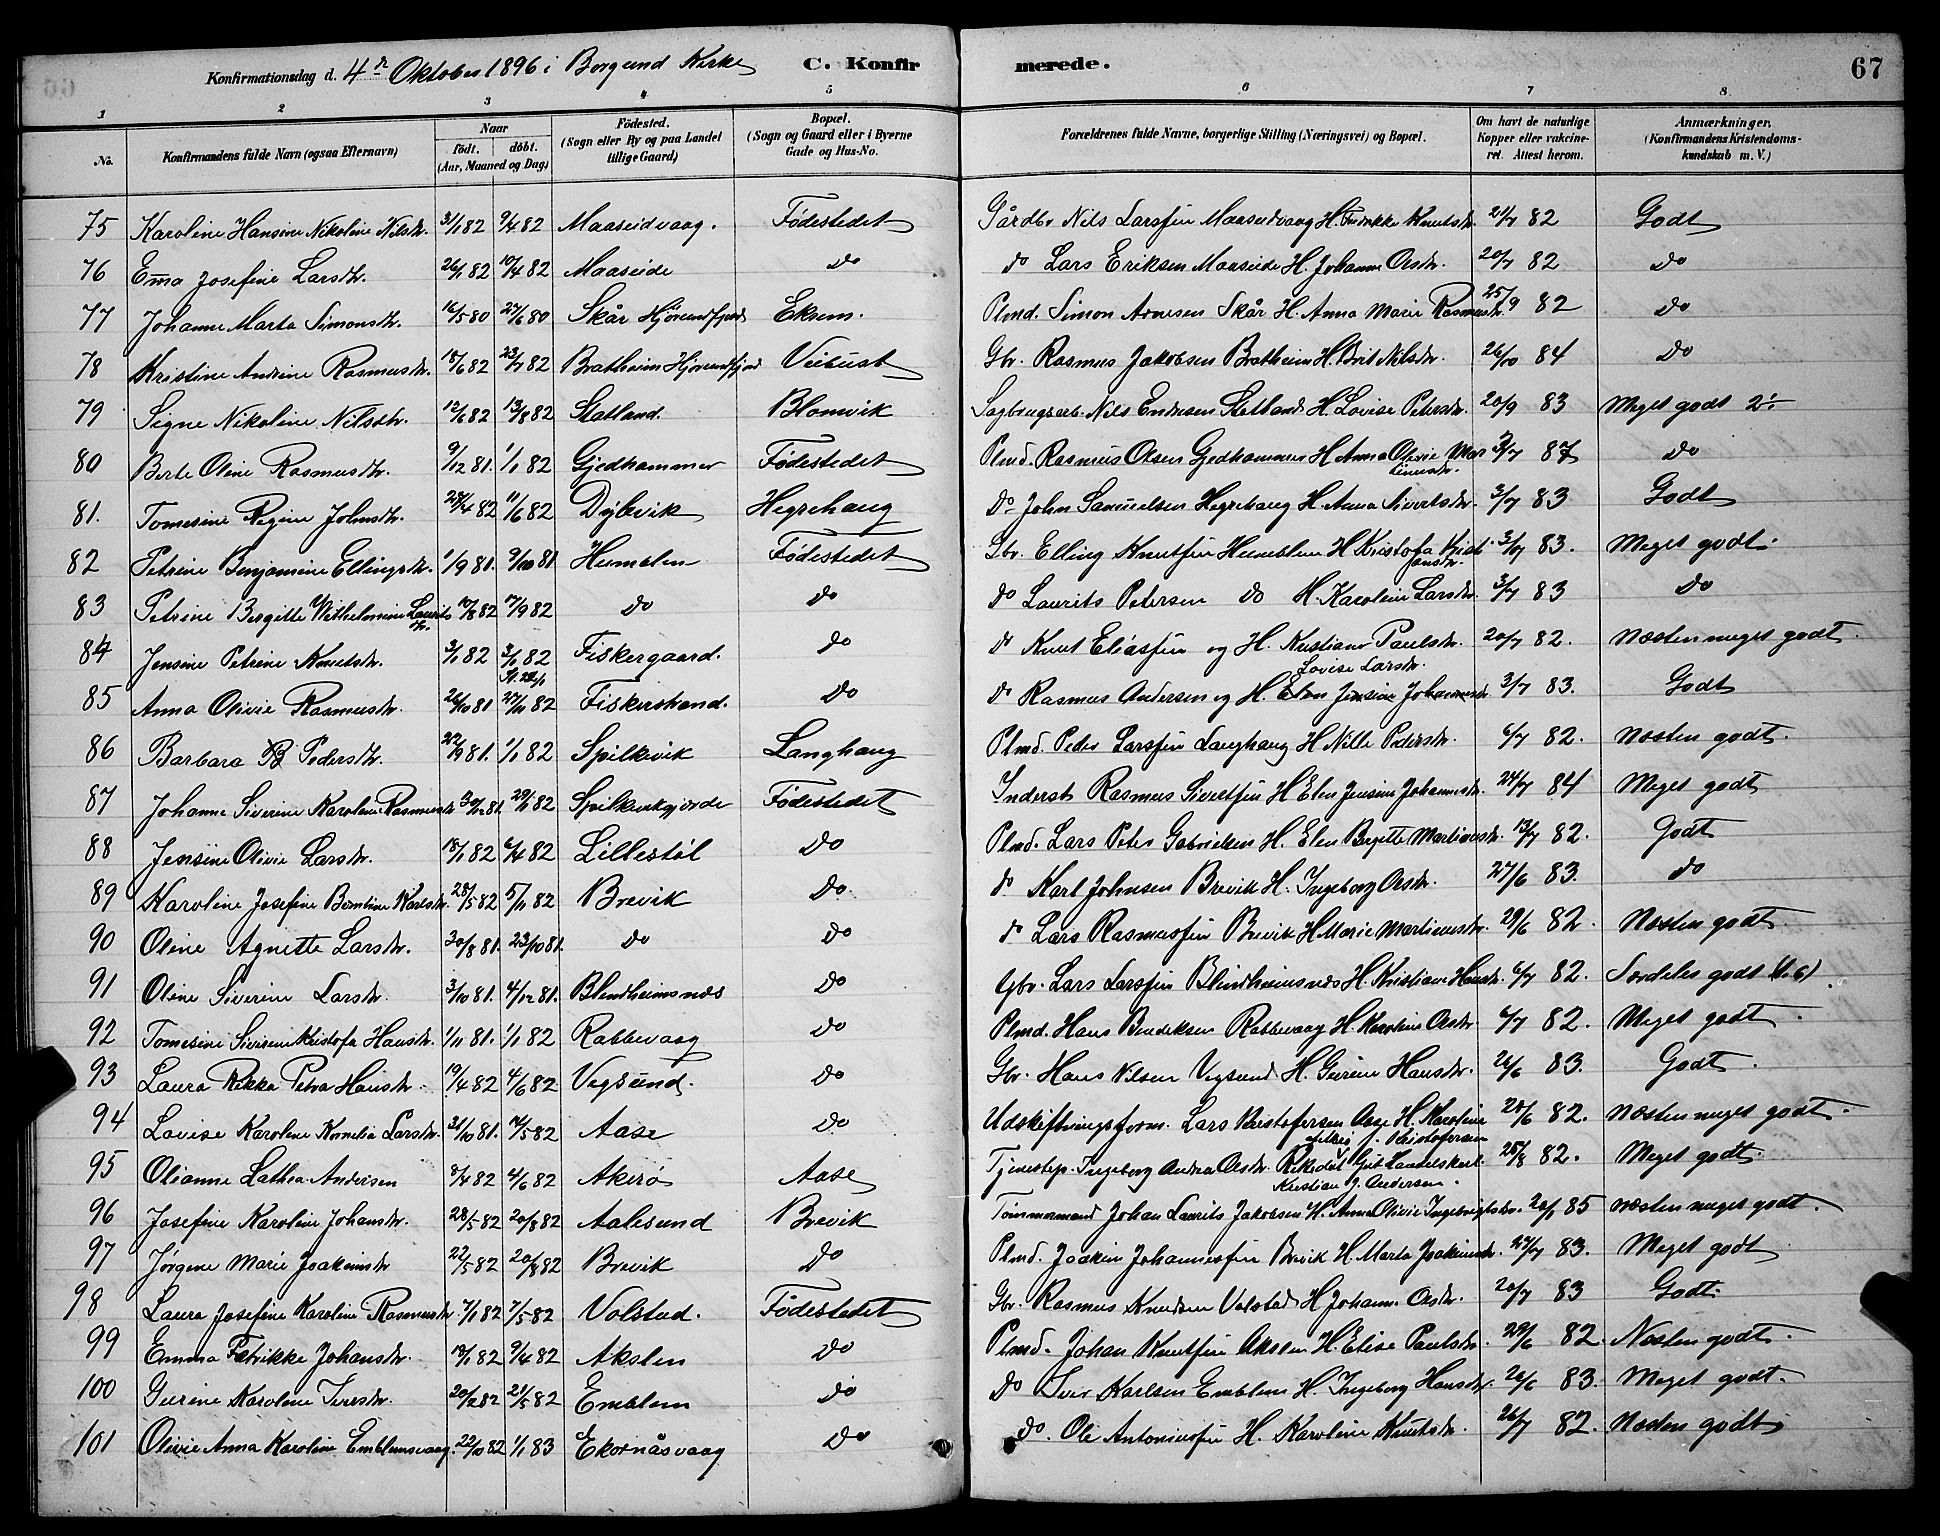 Konfirmationsdag d. 4de Oktober 1896 i Borgund Kirke C. Konfirmerede. 67
1 2 3 4 5 6 7 8
No. Konfirmandens fulde Navn (ogsaa Efternavn) Naar født. døbt. (Aar, Maaned og Dag) Fødested. (Sogn eller By og paa Landet tillige Gaard) Bopæl. (Sogn og Gaard eller i Byerne Gade og Hus-No. Forældrenes fulde Navne, borgerlige Stilling (Næringsvei) og Bopæl. Om havt de naturlige Kopper eller vakcineret. Attest herom. Anmærkninger, (Konfirmandens Kristendomskundskab m. V.)
75 Karoline Hansine Nikoline Nilsdtr. 3/1 82 9/4 82 Maaseidvaag. Fødestedet Gårdbr Nils Larssen Maaseidvaag H. Fredrikke Knutsdtr. 21/7 82 Godt
76 Emma Josefine Larsdtr. 26/1 82 10/4 82 Maaseide do do Lars Eriksen Maaseide H. Johanne Olsdtr. 20/7 82 do
77 Johanne Marta Simonsdtr. 16/5 80 27/6 80 Skår Hjørundfjord Eksem. Plmd. Simon Arnesen Skår H. Anna Marie Rasmusdtr. 25/9 82 do
78 Kristine Andrine Rasmusdtr. 18/6 82 23/7 82 Bratheim Hjørundfjord Veibust Gbr. Rasmus Jakobsen Bratheim H. Brit Nilsdtr. 26/10 84 do
79 Signe Nikoline Nilsdtr. 12/6 82 13/8 82 Slatland. Blomvik Sagbrugsarb. Nils Endresen Slatland H. Lovise Petersdtr. 20/9 83 Meget godt 2
80 Berte Oline Rasmusdtr. 9/12 81. 1/1 82 Gjedhammer Fødestedet Plmd. Rasmus Olsen Gjedhammer H. Anna Olivie Martinusdtr. 3/7 87 do
81. Tomesine Regine Johnsdtr. 28/4 82 11/6 82 Dybvik Hegrehaug Do John Samuelsen Hegrehaug H. Anna Sivertsdtr. 3/7 83 Godt
82 Petrine Benjamine Ellingsdtr. 1/9 81. 9/10 81 Humblen Fødestedet Gbr. Elling Knutsen Humblen H Kristofa Kristiansdtr. 3/7 83. Meget godt.
83 Petrine Bergitte Wilhelmine Lauritsdtr. 10/8 82 17/9 82 do do do Laurits Petersen do H. Karoline Larsdtr. 3/7 83 do
84 Jensine Petrine Knutsdtr. 3/1 82 3/1 82 Fiskergaard. do do Knut Eliassen og H. Kristiane Paulsdtr. 20/7 82. Næsten meget godt.
85 Anna Olivie Rasmusdtr. 26/10 81 27/11 82 Fiskerstrand. do do Rasmus Andersen og H. Elen Jensine Johannesdtr. Lovise Larsdtr. 3/7 83. Godt
86 Barbara B Pedersdtr. 22/9 81. 1/1 82 Spilkevik Langhaug Plmd. Peder Larssen Langhaug H Nille Petersdtr. 6/7 82. Næsten godt.
87 Johanne Siverine Karoline Rasmusdtr 30/12 81. 29/1 82 Spilkevikgjerde Fødestedet Inderst Rasmus Sivertsen H Elen Jensine Johannesdtr. 24/7 84 Meget godt
88 Jensine Olivie Larsdtr. 18/1 82 6/4 82 Lillestøl do Plmd. Lars Peter Gabrielsen H. Elen Bergitte Martinusdtr. 13/7 82. Godt
89 Karoline Josefine Berntine Karlsdtr. 28/5 82 5/11 82 Brevik Do do Karl Johnsen Brevik H. Ingeborg Olsdtr. 27/6 83. do
90 Oline Agnette Larsdtr. 30/8 81. 23/10 81. do do do Lars Rasmussen Brevik H Marie Martinusdtr. 29/6 82. Næsten godt.
91 Oline Siverine Larsdtr. 3/10 81. 4/12 81. Blindheimsnes do Gbr. Lars Larssen Blindheimsnes H. Kristiane Hansdtr. 6/7 82. Særdeles godt (1.6)
92 Tomesine Siverine Kristofa Hansdtr. 1/11 81. 1/1 82 Rabbevaag do Plmd. Hans Bendiksen Rabbevaag H. Karoline Olsdtr. 6/7 82. Meget godt.
93 Laura Rikka Petra Hansdtr. 19/4 82 4/6 82 Vegsund. do Gbr. Hans Nilsen Vegsund H. Gurine Hansdtr. 26/6 83. Godt.
94 Lovise Karoline Kornelia Larsdtr. 31/10 81. 14/5 82 Aase do Udskiftningsform. Lars Kristofersen Aase H. Karoline J. Kristofersen 20/6 82. Næsten meget godt.
95 Olianne Lathea Andersen 8/4 82 4/6 82 Akerø Aase Tjenestep. Ingeborg Andrea Olsdtr. Rikedal Gift Handelskarl. Kristian J. Andersen. 25/8 82. Meget godt.
96 Josefine Karoline Johansdtr. 28/5 82 20/8 82 Aalesund Brevik Tømmermand Johan Laurits Jakobsen H. Anne Olivie Ingebrigtsdtr. 20/1 85 Næsten meget godt.
97 Jørgine Marie Joakimsdtr 22/5 82 20/8 82 Brevik do Plmd. Joakim Johannessen Brevik H. Marta Joakimsdtr. 27/7 83. Meget godt
98 Laura Josefine Karoline Rasmusdtr. 7/1 82 7/5 82 Volstad. Fødestedet Gbr. Rasmus Knudsen Volstad H Johanne Olsdtr. 20/7 83 Godt.
99 Emma Fredrikke Johansdtr. 19/1 82 9/4 82 Akslen do Plmd. Johan Knutsen Akslen H. Elise Paulsdtr. 29/6 82. Næsten godt.
100 Gurine Karoline Iversdtr. 20/2 82 21/5 82 Emblem do Do Iver Karlsen Emblem H. Ingeborg Hansdtr. 26/6 83. Meget godt.
101 Olivie Anna Karoline Emblemsvaag. 22/10 82 1/1 83 Ekornåsvaag do do. Ole Antoniussen H. Karoline Knutsdtr. 26/7 82. Næsten godt